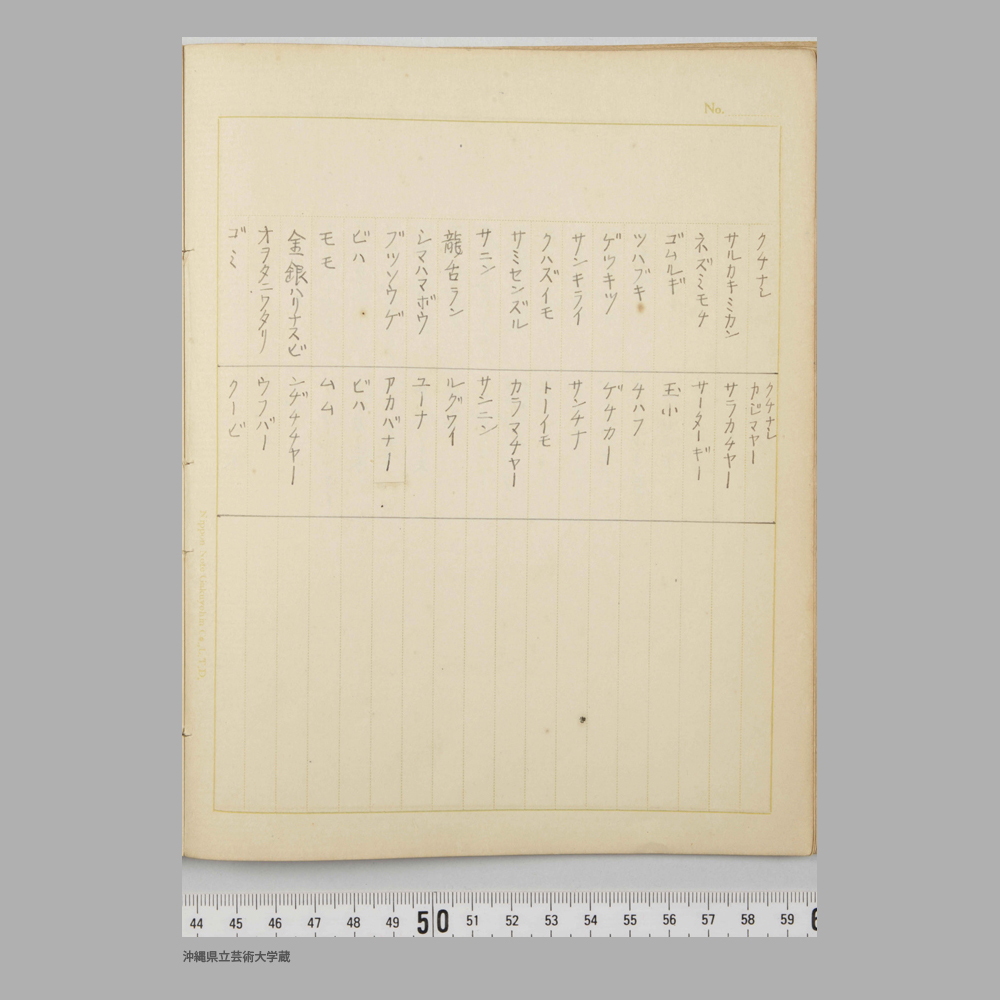 No.
クチナシ
サルカキミカン
ネズミモチ
ゴムルギ
ツハブキ
ゲツキツ
サンキライ
クハズイモ
サミセンズル
サニン
龍舌ラン
シマハマボウ
ブツソウゲ
ビハ
モモ
金銀ハリナスビ
オヲタニワタリ
ゴミ
クチナシ
カジマヤー
サラカチヤー
サーターギー
玉小
チハフ
ゲチカー
サンチナ
トーイモ
カラマチヤー
サンニン
ルグワイ
ユーナ
アカバナー
ビハ
ムム
ンヂチチヤー
ウフバー
クービ
44 45 46 47 48 49 50 51 52 53 54 55 56 57 58 59 6
沖縄県立芸術大学蔵